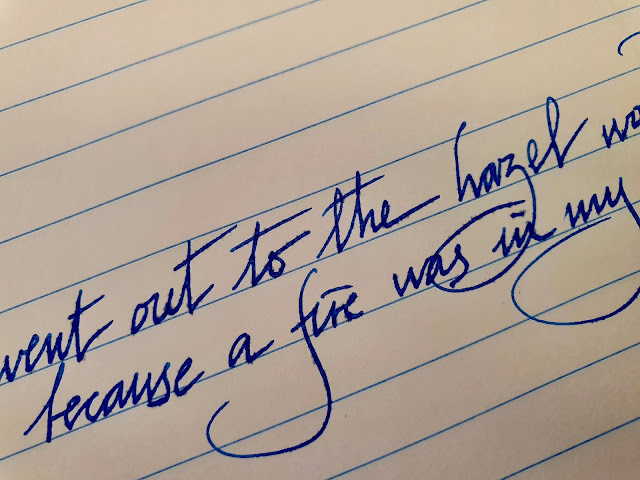 went out to the hazel wo
because a fire was in my